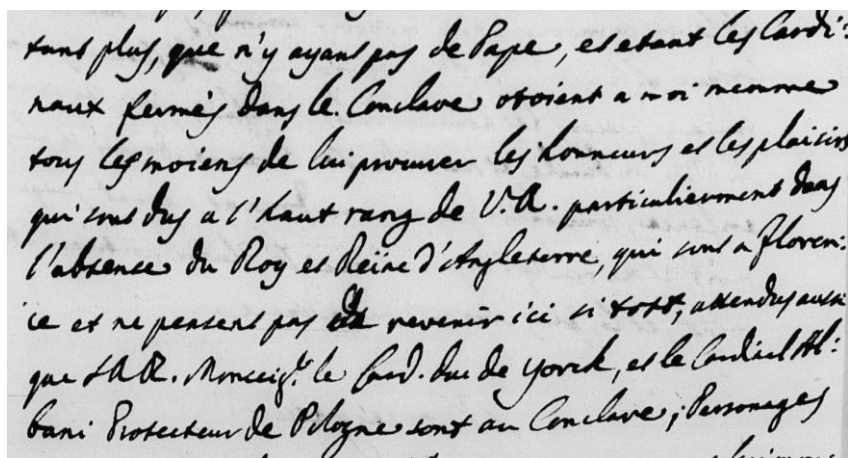 tant plus, que n'y ayant pas de Pape, et etant les Cardi:
naux fermés dans le Conclave otoient a moi memme
tous les moiens de lui procurer les honneurs et les plaisirs
qui sont dus a l'haut rang de V.A. particulierment dans
l'absence du Roy et Reine d'Angleterre, qui sont a Floren:
ce et ne pensent pas revenir ici si tost, attendus aussi
que S.A.R. Monseig.r le Card. duc de Yorck, et le Cardinal Al:
bani Protecteur de Pologne sont au Conclave; Personages